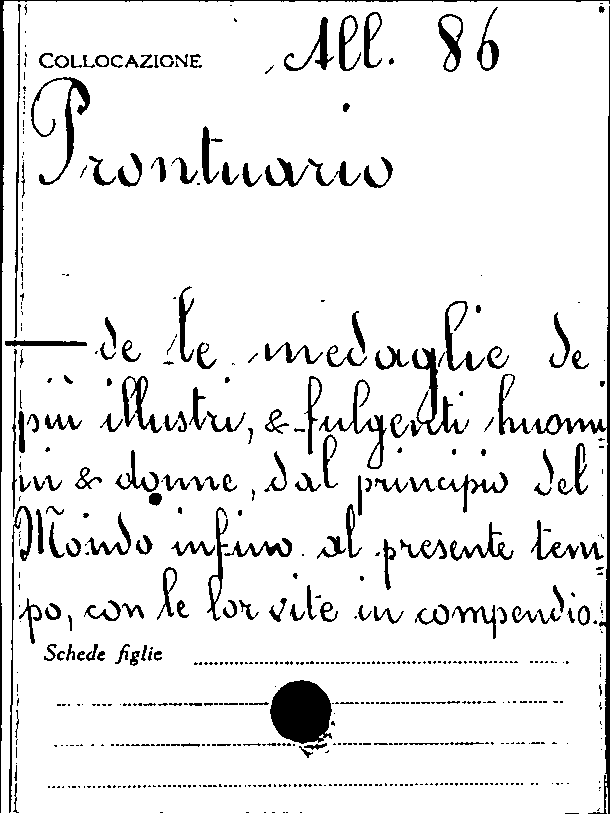 COLLOCAZIONE All. 86
Prontuario
— de le medaglie de
più illustri, & fulgenti huomi=
ni & donne, dal principio del
Mondo infino al presente tem=
po, con le lor vite in compendio.
Schede figlie